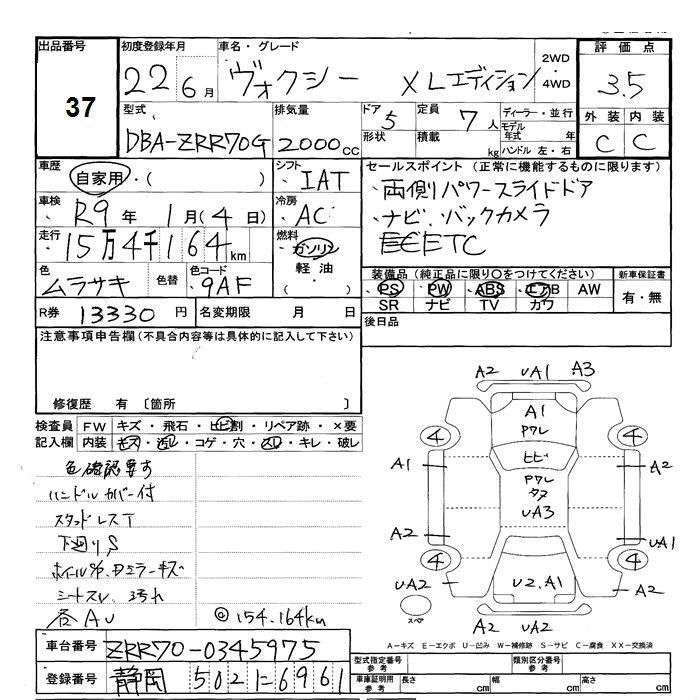 出品番号
37
初度登録年月
22 6月
車名・グレード
ヴォクシー XLエディション
2WD
・
4WD
評価点
3.5
外装 内装
C C
型式
DBA-ZRR70G
排気量
2000cc
ドア 5
形状
定員 7人
積載 kg
ディーラー・並行
モデル年式 年
ハンドル 左・右
車歴
自家用・( )
シフト
IAT
車検
R9年 1月(4日)
冷房
AC
走行
15万4千164km
燃料
ガソリン
軽油
・( )
色
ムラサキ
色替
色コード
9AF
セールスポイント(正常に機能するものに限ります)
・両側パワースライドドア
・ナビ.バックカメラ
ETC
装備品(純正品に限り○をつけてください)
新車保証書
PS PW ABS エアB AW
SR ナビ TV カワ
有・無
R券 13330円
名変期限 月 日
後日品
注意事項申告欄(不具合内容等は具体的に記入して下さい)
修復歴 有 〔箇所
検査員記入欄
FW キズ・飛石・ヒビ割・リペア跡・×要
内装 キズ・汚レ・コゲ・穴・スレ・キレ・破レ
色確認要す
ハンドルカバー付
スタッドレスT
下廻りS
シートスレ.汚れ
各AU
@154.164km
A2 UA1 A3
A1
ヒビ
UA3
U2.A1
4 4
A1 A2
A2 UA1
4 4
UA2 A2
スペア
A2 UA2
A-キズ E-エクボ U-凹み W-補修跡 S-サビ C-腐食 XX-交換済
車台番号 ZRR70-0345975
登録番号 静岡 502 6961
型式指定番号 参考
類別区分番号 参考
車庫証明用 参考
長さ cm 幅 cm 高さ cm